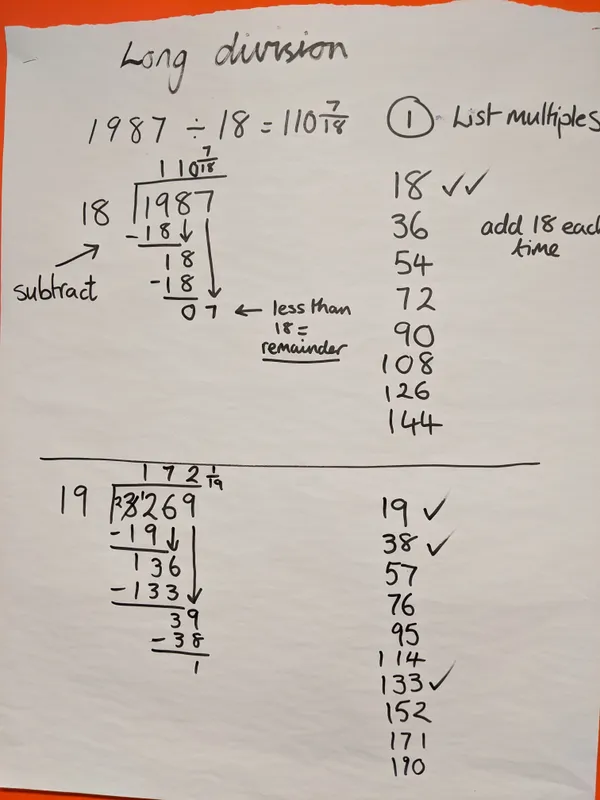 Long division
1987 ÷ 18 = 110 7/18
① List multiples
110 7/18
18 1987
-18
18
-18
07
subtract
← less than
18 =
remainder
18 ✓✓
36
54
72
90
108
126
144
add 18 each
time
172 1/19
19 3269
-19
136
-133
39
-38
1
19 ✓
38 ✓
57
76
95
114
133 ✓
152
171
190